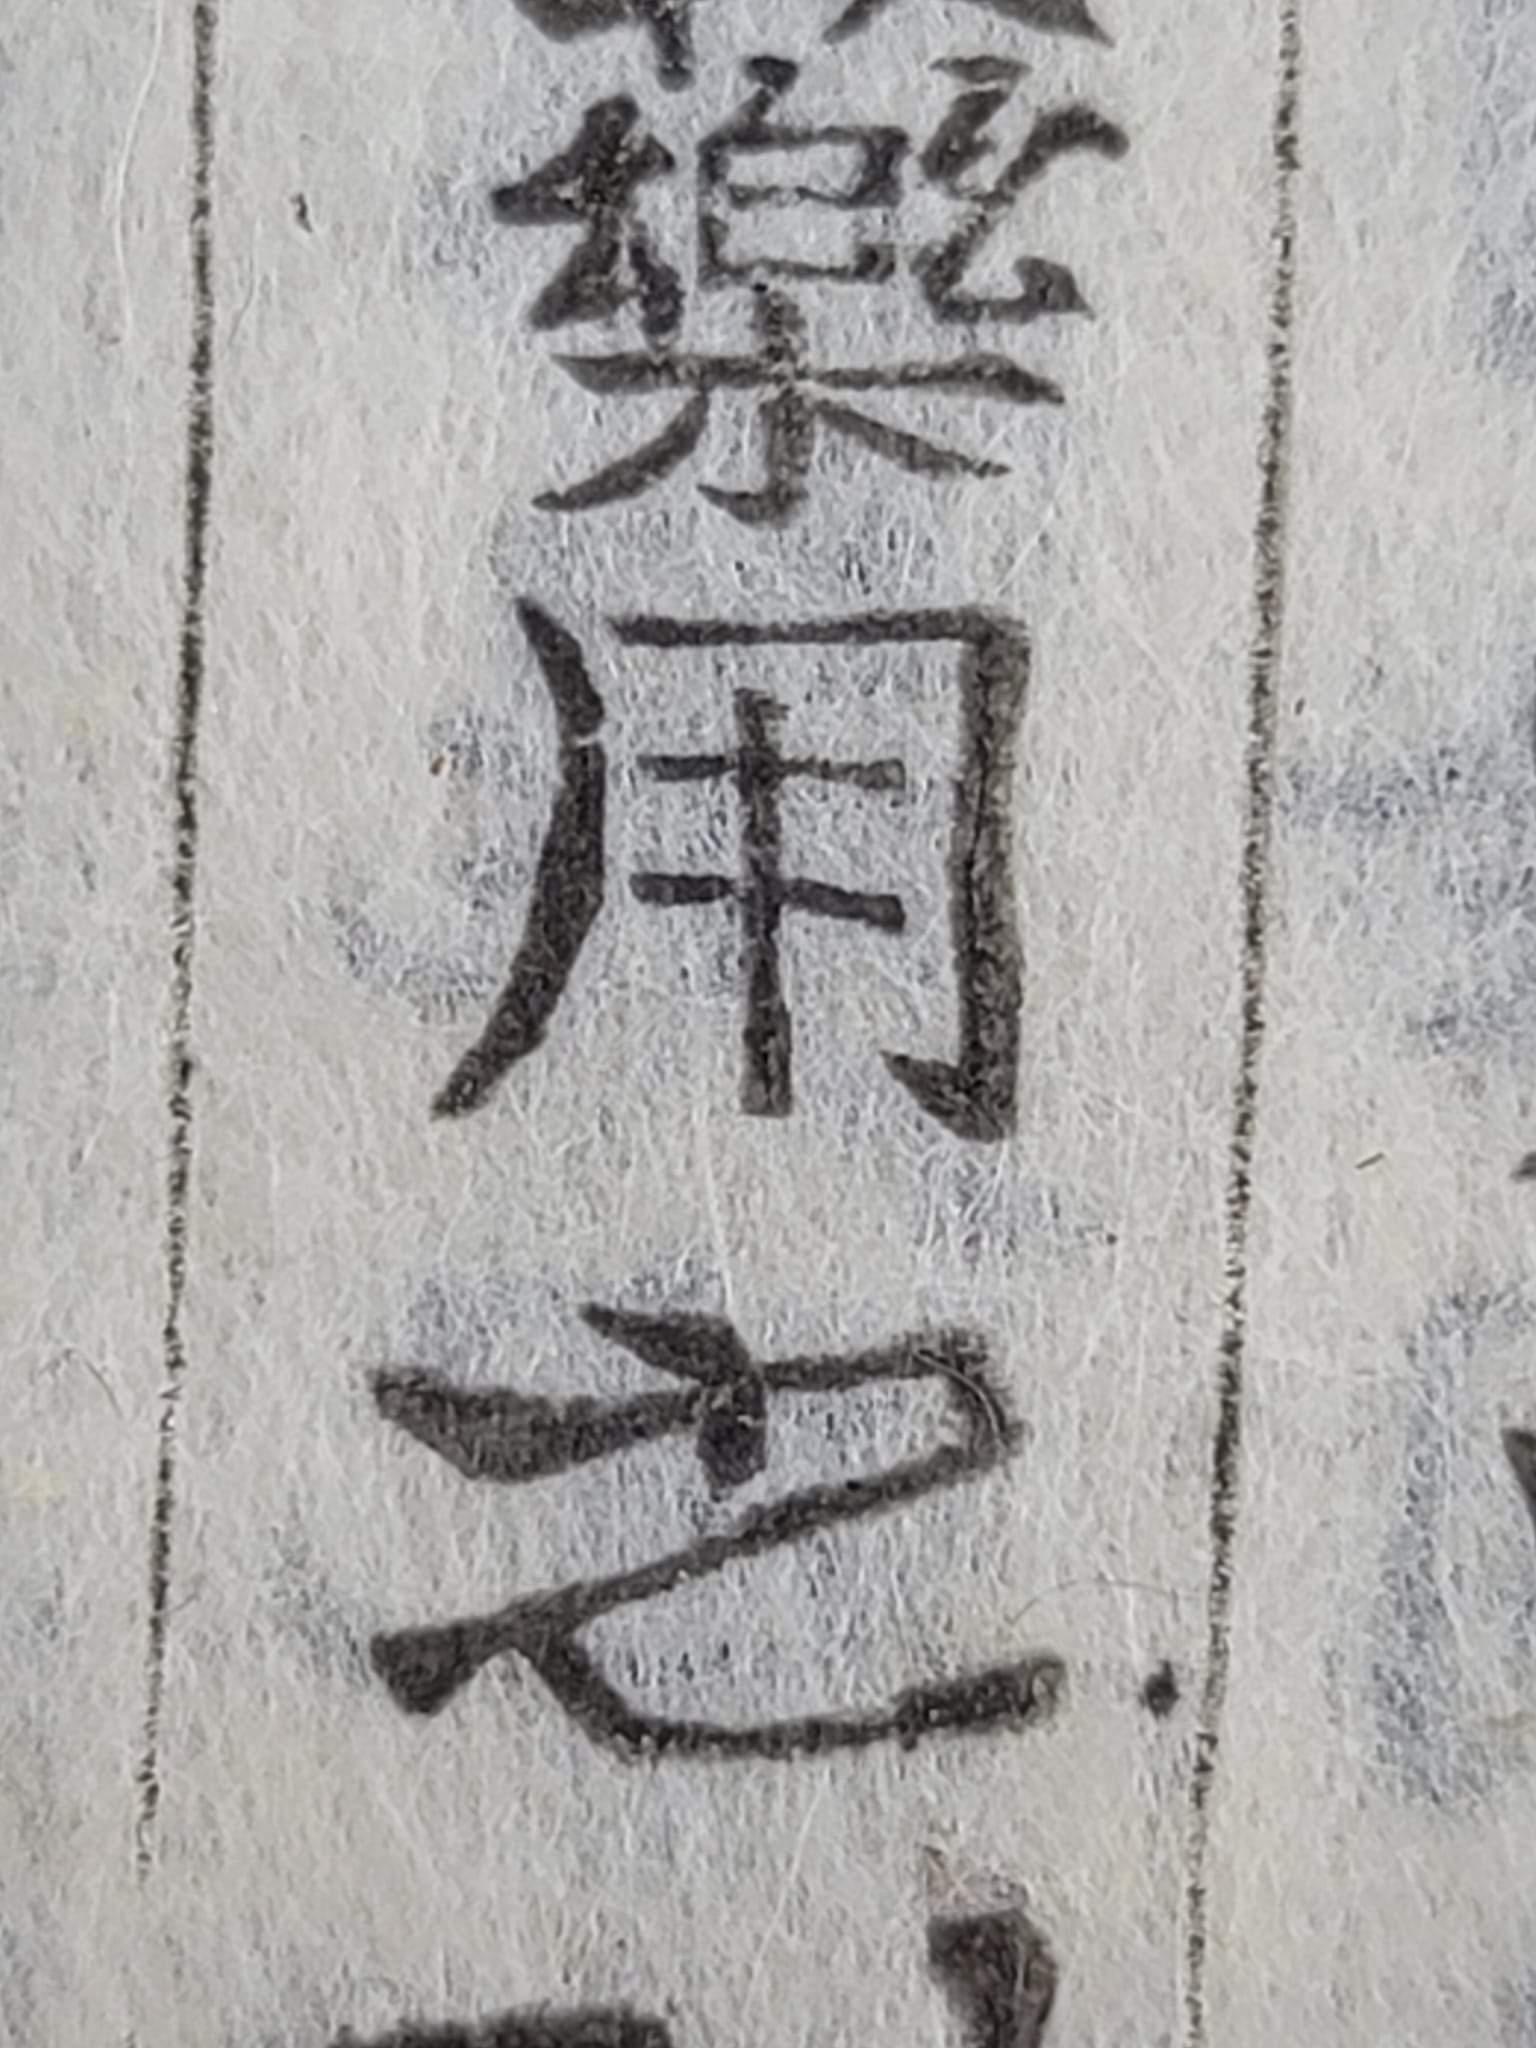 樂用之